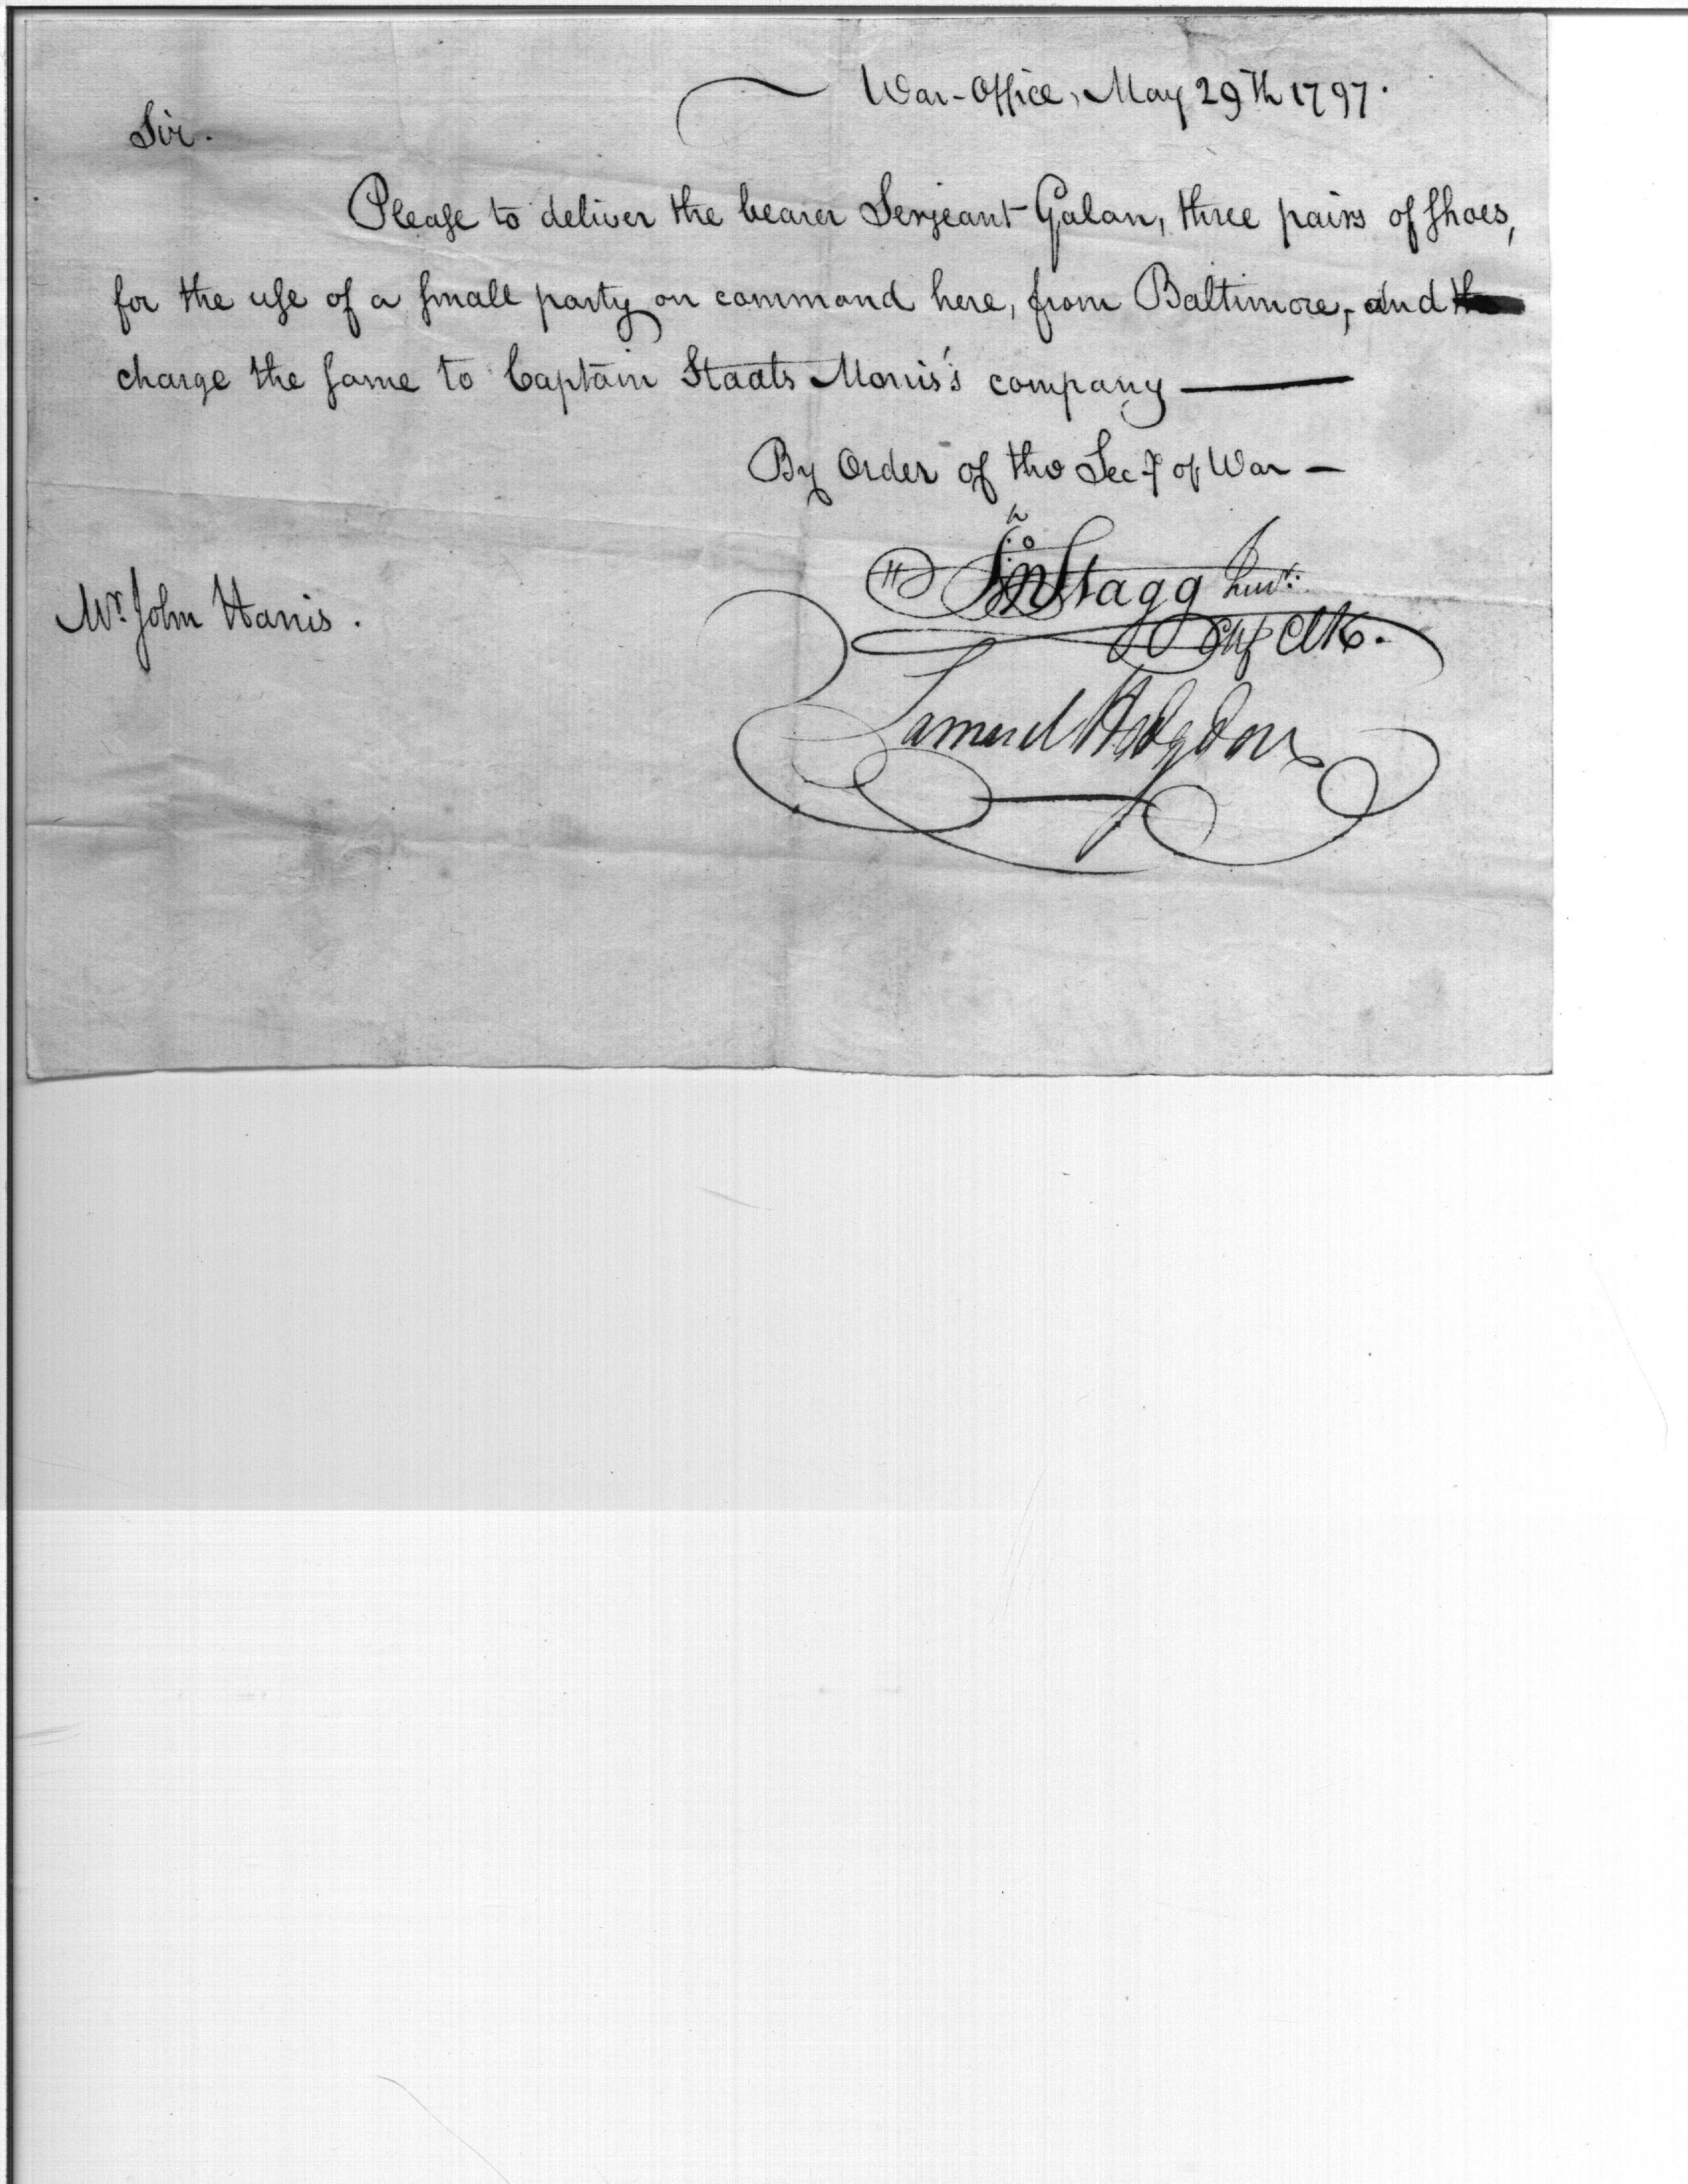 War-Office, May 29th 1797.
Sir.
Please to deliver the bearer Serjeant Galan, three pairs of shoes,
for the use of a small party on command here, from Baltimore, and the
charge the same to Captain Staats Morris's company
By Order of the Secy of War
Jno Stagg Junr.
Chf Clk.
Mr. John Harris.
Samuel Hodgdon